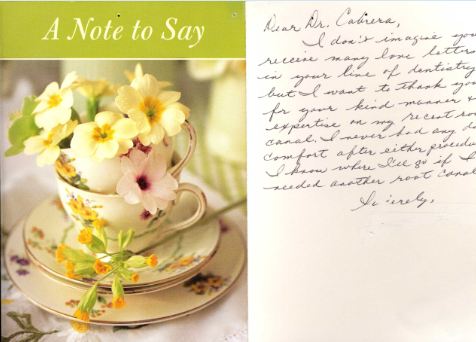 A Note to Say
Dear Dr. Cabrera,
I don't imagine you
receive many love letters
in your line of dentistry
but I want to thank you
for your kind manner
expertise on my recent
canal. I never had any
comfort after either
I know where I'll go if I
needed another root canal